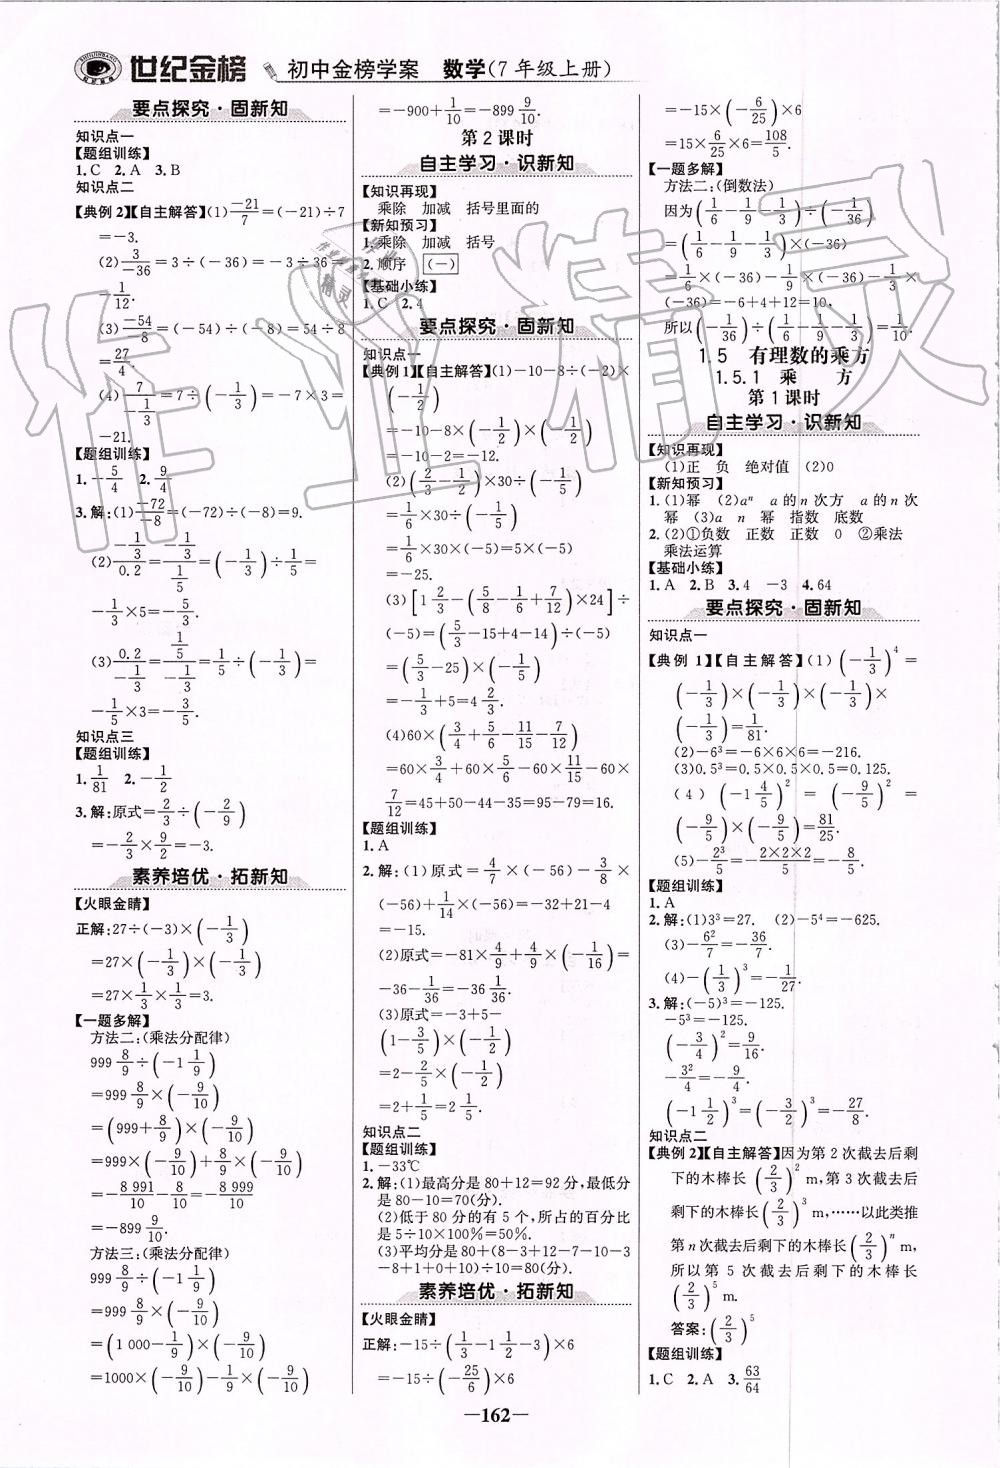 世纪金榜 初中金榜学案 数学(7年级上册)
要点探究·固新知
知识点一
【题组训练】
1. C 2. A 3. B
知识点二
【典例2】【自主解答】(1)\frac{-21}{7}=(-21)÷7
=-3.
(2)\frac{3}{-36}=3÷(-36)=-3÷36=
-\frac{1}{12}.
(3)\frac{-54}{-8}=(-54)÷(-8)=54÷8
=\frac{27}{4}.
(4)\frac{7}{-\frac{1}{3}}=7÷(-\frac{1}{3})=-7×3=
-21.
【题组训练】
1. -\frac{5}{4} 2. \frac{9}{4}
3. 解:(1)\frac{-72}{-8}=(-72)÷(-8)=9.
(2)\frac{-\frac{1}{3}}{0.2}=\frac{-\frac{1}{3}}{\frac{1}{5}}=(-\frac{1}{3})÷\frac{1}{5}=
-\frac{1}{3}×5=-\frac{5}{3}.
(3)\frac{0.2}{-\frac{1}{3}}=\frac{\frac{1}{5}}{-\frac{1}{3}}=\frac{1}{5}÷(-\frac{1}{3})=
-\frac{1}{5}×3=-\frac{3}{5}.
知识点三
【题组训练】
1. \frac{1}{81} 2. -\frac{1}{2}
3. 解:原式=\frac{2}{3}÷(-\frac{2}{9})
=-\frac{2}{3}×\frac{9}{2}=-3.
素养培优·拓新知
【火眼金睛】
正解:27÷(-3)×(-\frac{1}{3})
=27×(-\frac{1}{3})×(-\frac{1}{3})
=27×\frac{1}{3}×\frac{1}{3}=3.
【一题多解】
方法二:(乘法分配律)
999\frac{8}{9}÷(-1\frac{1}{9})
=999\frac{8}{9}×(-\frac{9}{10})
=(999+\frac{8}{9})×(-\frac{9}{10})
=999×(-\frac{9}{10})+\frac{8}{9}×(-\frac{9}{10})
=-\frac{8 991}{10}-\frac{8}{10}=-\frac{8 999}{10}
=-899\frac{9}{10}.
方法三:(乘法分配律)
999\frac{8}{9}÷(-1\frac{1}{9})
=999\frac{8}{9}×(-\frac{9}{10})
=(1 000-\frac{1}{9})×(-\frac{9}{10})
=1000×(-\frac{9}{10})-\frac{1}{9}×(-\frac{9}{10})
=-900+\frac{1}{10}=-899\frac{9}{10}.
第2课时
自主学习·识新知
【知识再现】
乘除 加减 括号里面的
【新知预习】
1. 乘除 加减 括号
2. 顺序 (-)
【基础小练】
1. C 2. 4
要点探究·固新知
知识点一
【典例1】【自主解答】(1)-10-8÷(-2)×
(-\frac{1}{2})
=-10-8×(-\frac{1}{2})×(-\frac{1}{2})
=-10-2=-12.
(2)(\frac{2}{3}-\frac{1}{2})×30÷(-\frac{1}{5})
=\frac{1}{6}×30÷(-\frac{1}{5})
=\frac{1}{6}×30×(-5)=5×(-5)
=-25.
(3)[1\frac{2}{3}-(\frac{5}{8}-\frac{1}{6}+\frac{7}{12})×24]÷
(-5)=(\frac{5}{3}-15+4-14)÷(-5)
=(\frac{5}{3}-25)×(-\frac{1}{5})
=-\frac{1}{3}+5=4\frac{2}{3}.
(4)60×(\frac{3}{4}+\frac{5}{6}-\frac{11}{15}-\frac{7}{12})
=60×\frac{3}{4}+60×\frac{5}{6}-60×\frac{11}{15}-60×
\frac{7}{12}=45+50-44-35=95-79=16.
【题组训练】
1. A
2. 解:(1)原式=\frac{4}{7}×(-56)-\frac{3}{8}×
(-56)+\frac{1}{14}×(-56)=-32+21-4
=-15.
(2)原式=-81×\frac{4}{9}×\frac{4}{9}÷(-\frac{1}{16})=
-36-\frac{1}{36}=-36\frac{1}{36}.
(3)原式=-3+5-
(1-\frac{3}{5})×(-\frac{1}{2})
=2-\frac{2}{5}×(-\frac{1}{2})
=2+\frac{1}{5}=2\frac{1}{5}.
知识点二
【题组训练】
1. -33℃
2. 解:(1)最高分是80+12=92分,最低分
是80-10=70(分).
(2)低于80分的有5个,所占的百分比
是5÷10×100%=50%.
(3)平均分是80+(8-3+12-7-10-3
-8+1+0+10)÷10=80(分).
素养培优·拓新知
【火眼金睛】
正解:-15÷(\frac{1}{3}-1\frac{1}{2}-3)×6
=-15÷(-\frac{25}{6})×6
=-15×(-\frac{6}{25})×6
=15×\frac{6}{25}×6=\frac{108}{5}.
【一题多解】
方法二:(倒数法)
因为(\frac{1}{6}-\frac{1}{9}-\frac{1}{3})÷(-\frac{1}{36})
=(\frac{1}{6}-\frac{1}{9}-\frac{1}{3})×(-36)
=\frac{1}{6}×(-36)-\frac{1}{9}×(-36)-\frac{1}{3}×
(-36)=-6+4+12=10,
所以(-\frac{1}{36})÷(\frac{1}{6}-\frac{1}{9}-\frac{1}{3})=\frac{1}{10}.
1.5 有理数的乘方
1.5.1 乘 方
第1课时
自主学习·识新知
【知识再现】
(1)正 负 绝对值 (2)0
【新知预习】
1. (1)幂 (2)aⁿ a的n次方 a的n次
幂 (3)a n 幂 指数 底数
2. (2)①负数 正数 正数 0 ②乘法
乘法运算
【基础小练】
1. A 2. B 3. 4 -3 4. 64
要点探究·固新知
知识点一
【典例1】【自主解答】(1)(-\frac{1}{3})⁴=
(-\frac{1}{3})×(-\frac{1}{3})×(-\frac{1}{3})×
(-\frac{1}{3})=\frac{1}{81}.
(2)-6³=-6×6×6=-216.
(3)0.5³=0.5×0.5×0.5=0.125.
(4)(-1\frac{4}{5})²=(-\frac{9}{5})²=
(-\frac{9}{5})×(-\frac{9}{5})=\frac{81}{25}.
(5)-\frac{2³}{5}=-\frac{2×2×2}{5}=-\frac{8}{5}.
【题组训练】
1. A
2. 解:(1)3³=27. (2)-5⁴=-625.
(3)-\frac{6²}{7}=-\frac{36}{7}.
(4)-(\frac{1}{3})³=-\frac{1}{27}.
3. 解:(-5)³=-125.
-5³=-125.
(-\frac{3}{4})²=\frac{9}{16}.
-\frac{3²}{4}=-\frac{9}{4}.
(-1\frac{1}{2})³=(-\frac{3}{2})³=-\frac{27}{8}.
知识点二
【典例2】【自主解答】因为第2次截去后剩
下的木棒长(\frac{2}{3})² m,第3次截去后
剩下的木棒长(\frac{2}{3})³ m,……以此类推
第n次截去后剩下的木棒长(\frac{2}{3})ⁿ m,
所以第5次截去后剩下的木棒长
(\frac{2}{3})⁵ m.
答案:(\frac{2}{3})⁵
【题组训练】
1. C 2. A 3. \frac{63}{64}
—162—
作业精灵